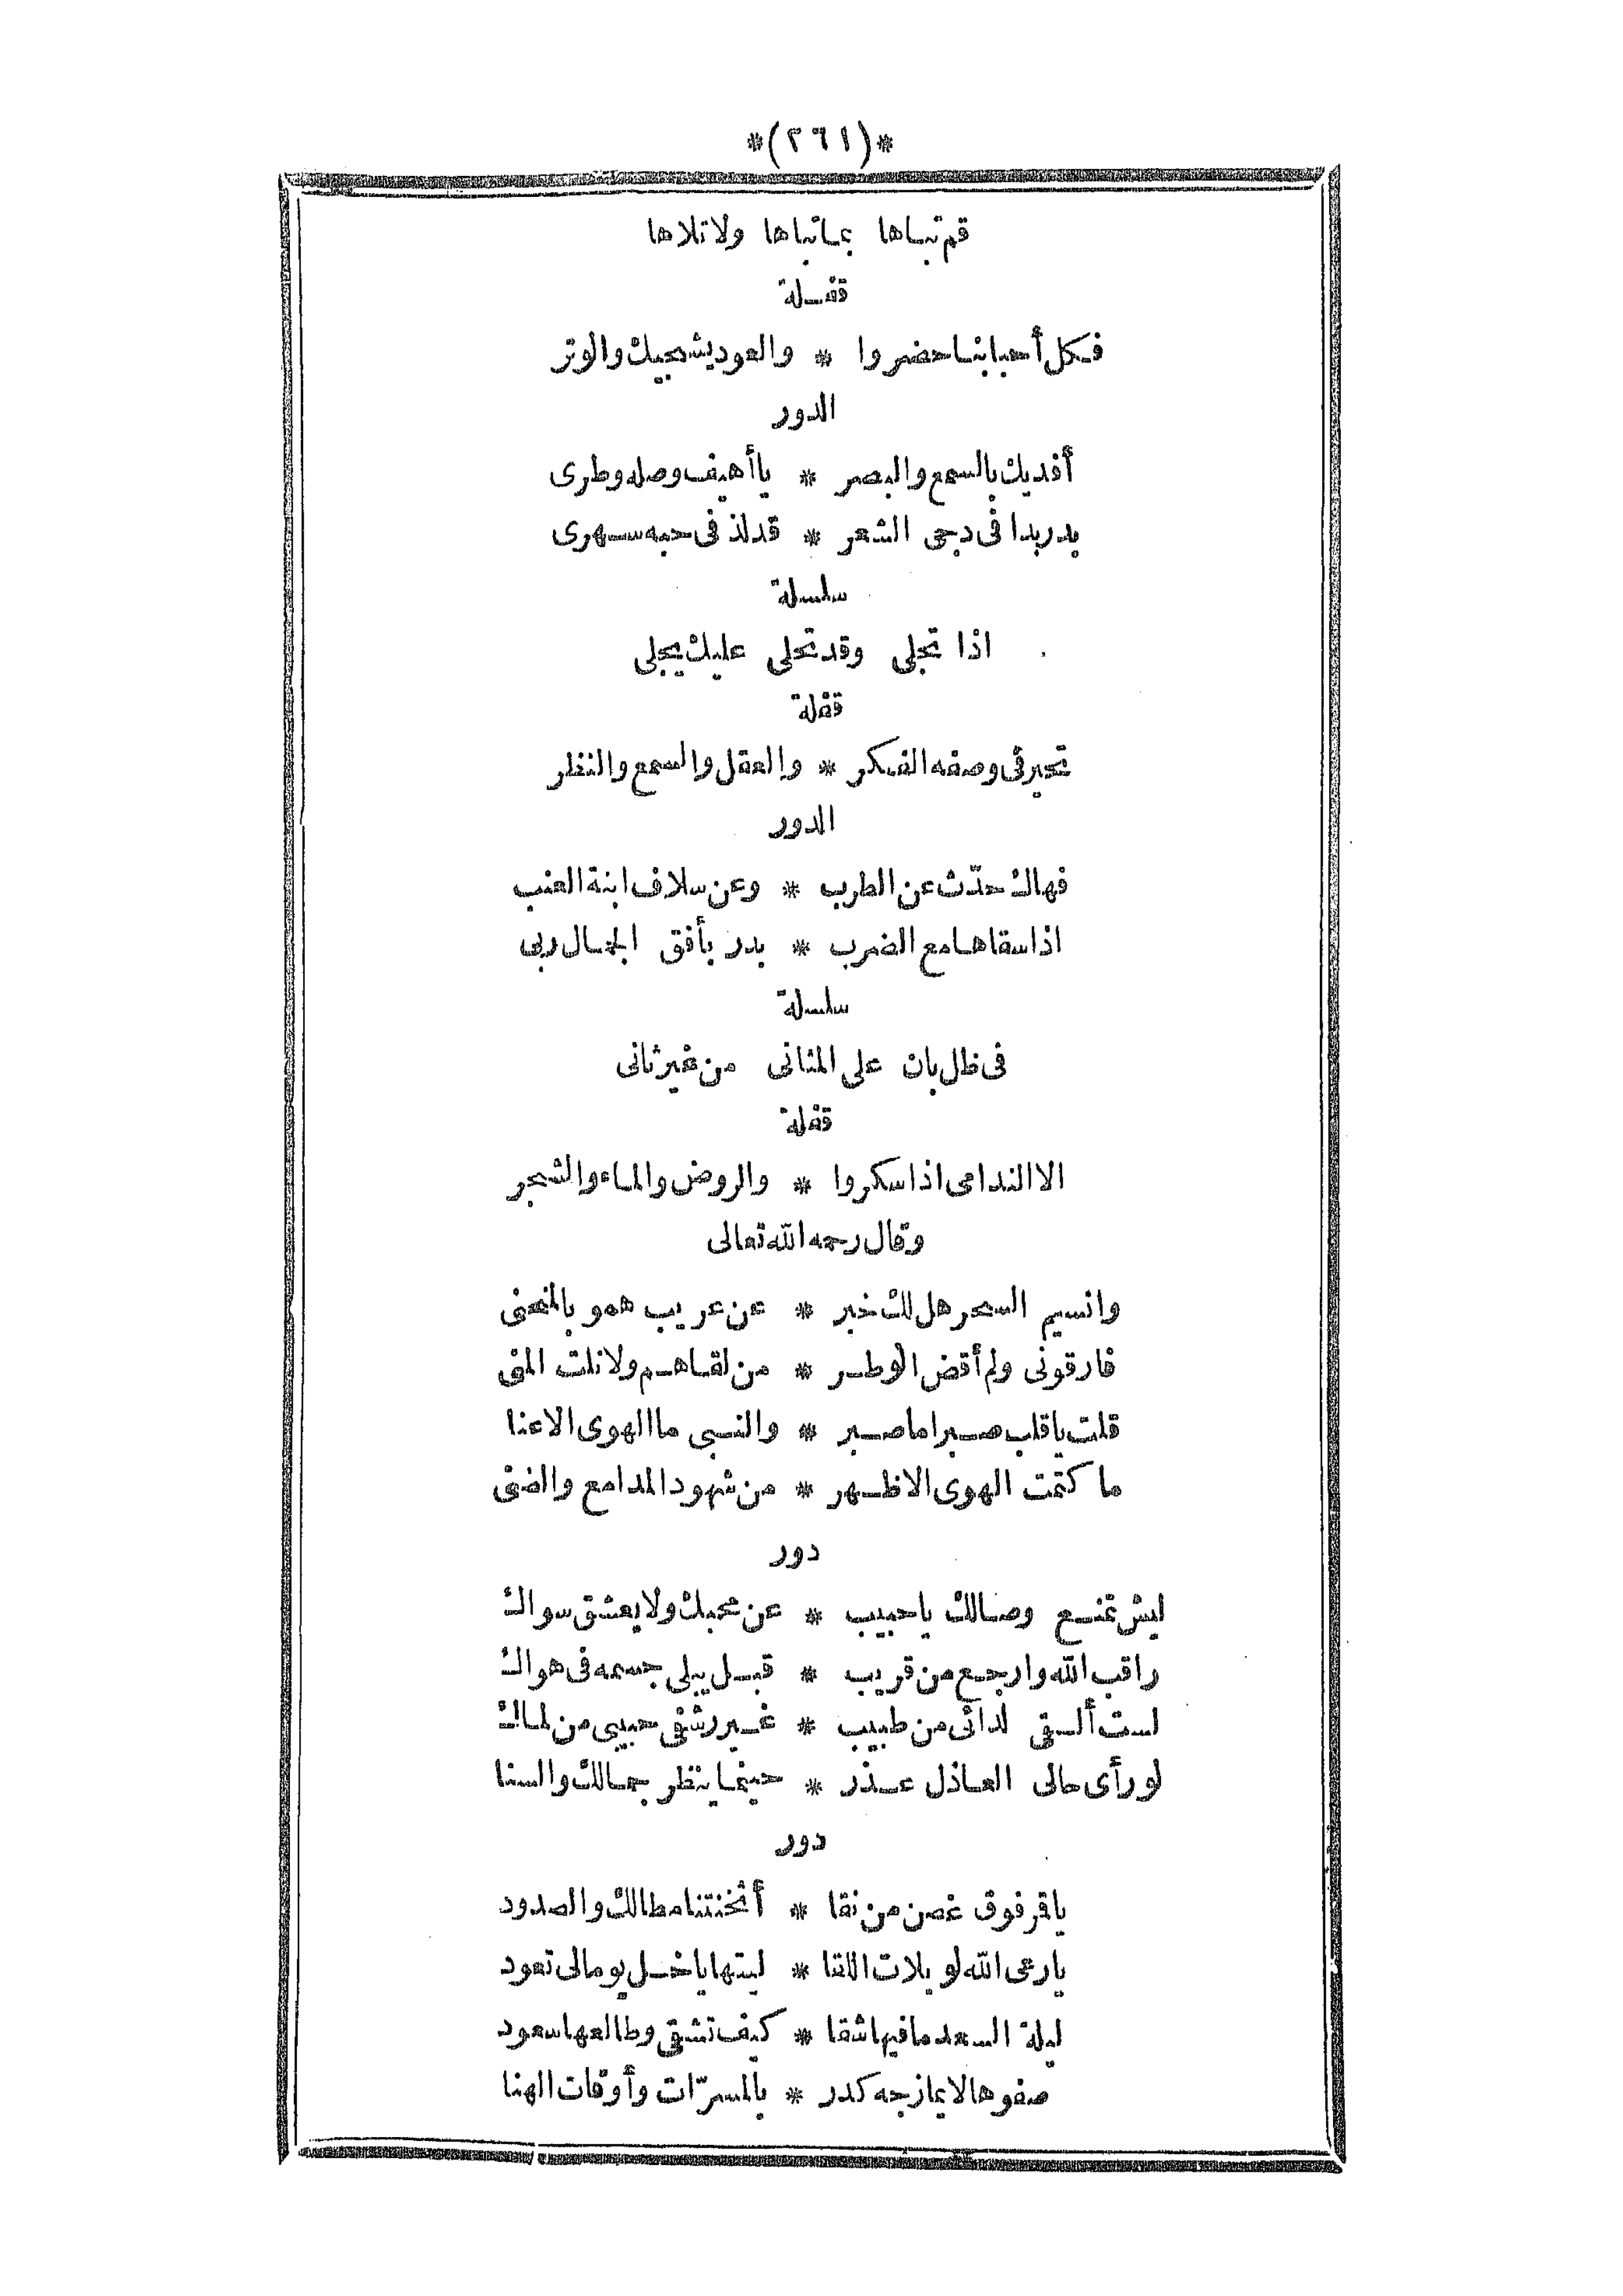 *(٢٦١)*
قم تباها بماتباها ولاتلاها
قفلة
فكل أحبابنا حضروا * والعود يشجيك والوتر
الدور
أفديك بالسمع والبصر * ياأهيف وصله وطرى
بدر بدا فى دجى الشعر * قدلذ فى حبه سهرى
سلسلة
اذا تجلى وقد تحلى عليك يجلى
قفلة
تحير فى وصفه الفكر * والعقل والسمع والنظر
الدور
فهاك حدّث عن الطرب * وعن سلاف ابنة العنب
اذا سقاها مع الضرب * بدر بأفق الجمال ربى
سلسلة
فى ظل بان على المثانى من غير ثانى
قفلة
الا الندامى اذا سكروا * والروض والماء والشجر
وقال رحمه الله تعالى
وانسيم السحر هل لك خبر * عن عريب همو بالمنحنى
فارقونى ولم أقض الوطر * من لقاهم ولا نلت المنى
قلت ياقلب صبرا ما صبر * والنبى ما الهوى الا عنا
ما كتمت الهوى الا ظهر * من شهود المدامع والضنى
دور
ليش تمنع وصالك ياحبيب * عن محبك ولا يعشق سواك
راقب الله وارجع من قريب * قبل يبلى جسمه فى هواك
لست ألقى لدائى من طبيب * غير رشفى حبيبى من لماك
لو رأى حالى العاذل عذر * حينما ينظر جمالك والسنا
دور
ياقمر فوق غصن من نقا * أثخنتنا مطالك والصدود
يارعى الله لويلات اللقا * ليتها ياخل يوما لى تعود
ليلة السعد مافيها شقا * كيف تشقى وطالعها سعود
صفوها لا يمازجه كدر * بالمسرّات وأوقات الهنا